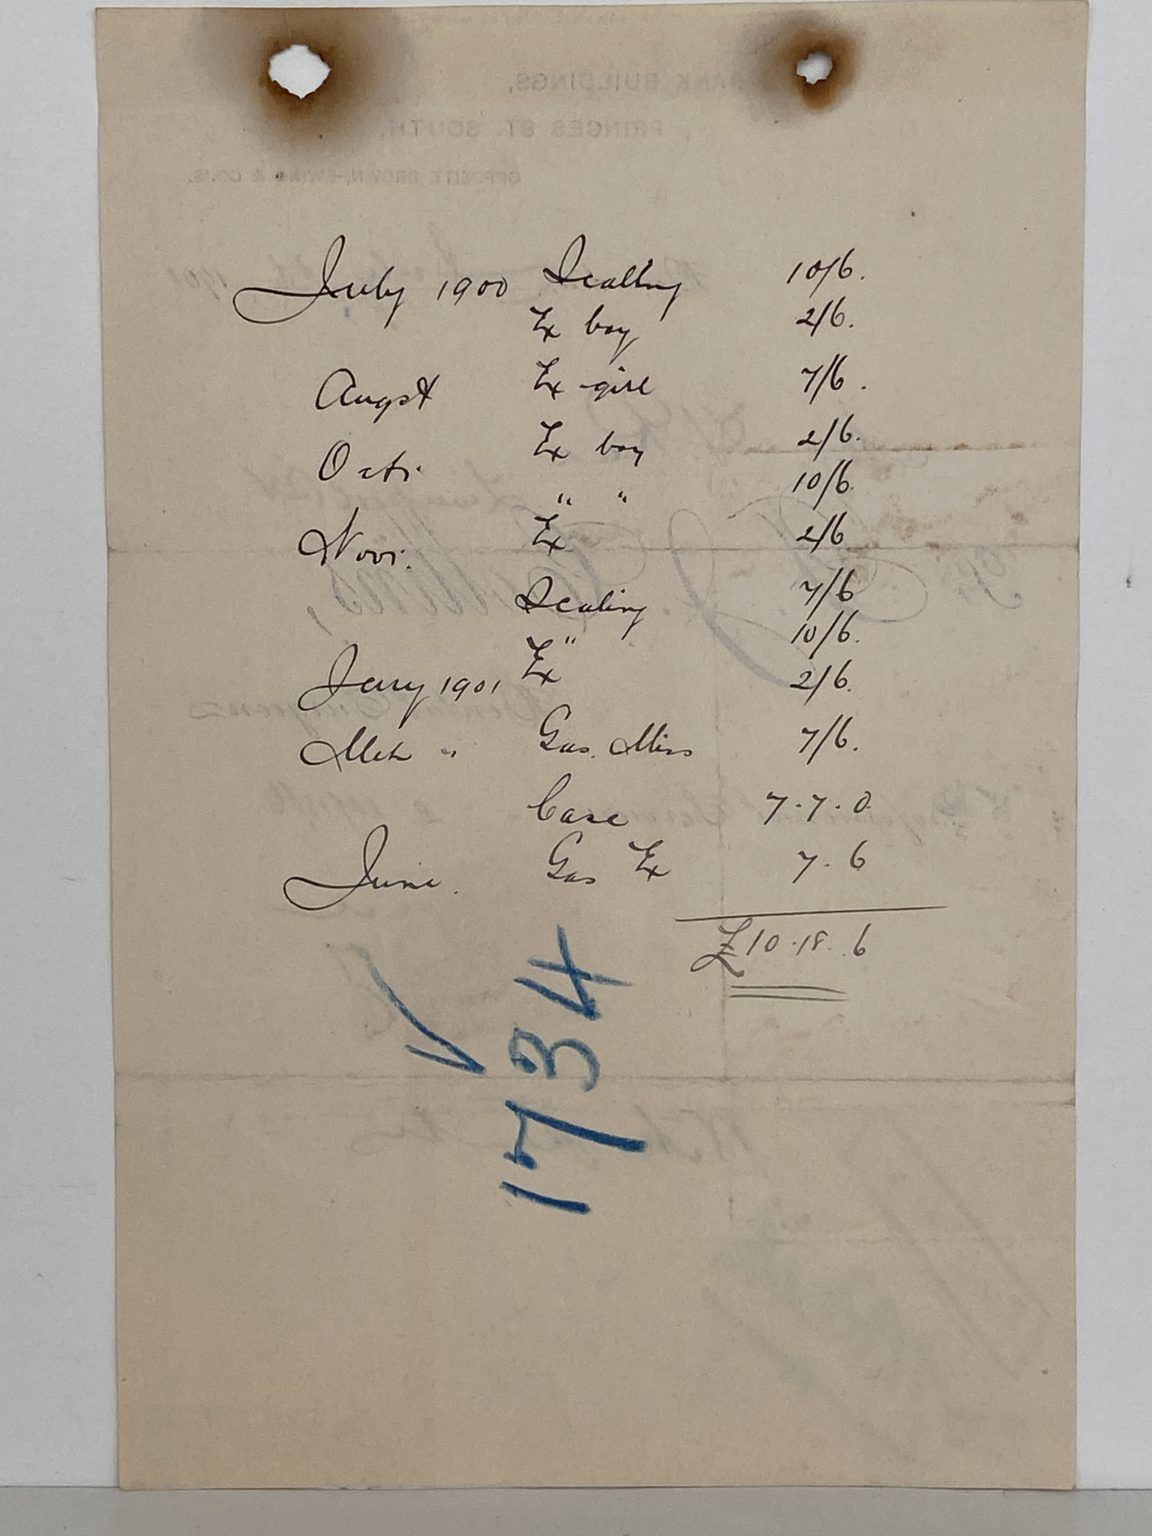 BANK BUILDINGS,
PRINCES ST. SOUTH,
OPPOSITE BROWN, EWING & CO'S.
July 1900 Scaling 10/6.
Ex boy 2/6.
Augst Ex girl 7/6.
Octr. Ex boy 2/6.
" " 10/6
Novr. Ex 2/6
Scaling 7/6
" 10/6.
Jany 1901 Ex 2/6.
Mch " Gas. Miss 7/6.
Case 7.7.0.
June. Gas Ex 7.6
£10.18.6
1734